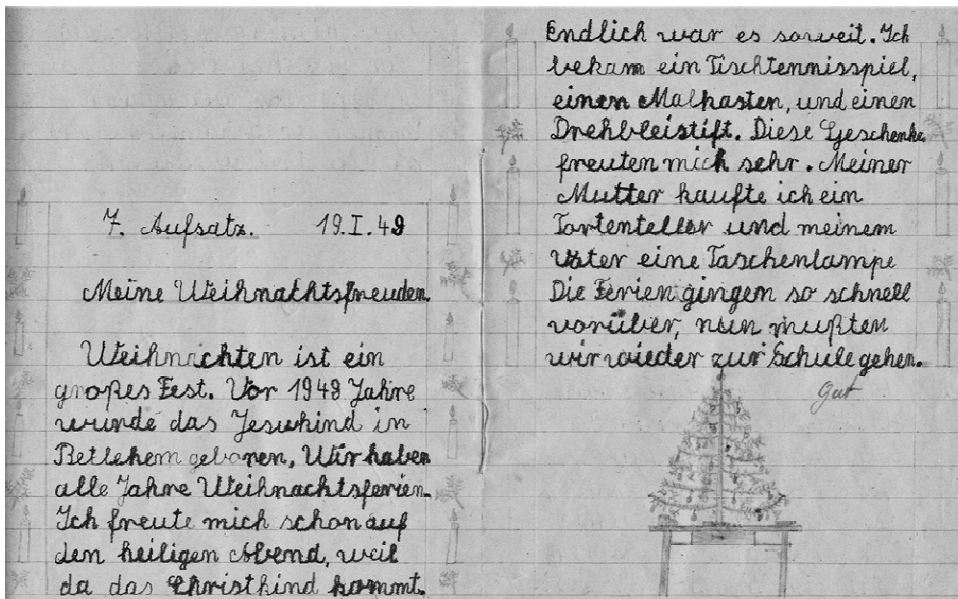 7. Aufsatz. 19.I.49
Meine Weihnachtsfreuden.
Weihnachten ist ein
großes Fest. Vor 1949 Jahre
wurde das Jesukind in
Betlehem geboren, Wir haben
alle Jahre Weihnachtsferien.
Ich freute mich schon auf
den heiligen Abend, weil
da das Christkind kommt.
Endlich war es soweit. Ich
bekam ein Tischtennisspiel,
einen Malkasten, und einen
Drehbleistift. Diese Geschenke
freuten mich sehr. Meiner
Mutter kaufte ich ein
Tortenteller und meinem
Vater eine Taschenlampe
Die Ferien gingen so schnell
vorüber, nun mußten
wir wieder zur Schule gehen.
Gut